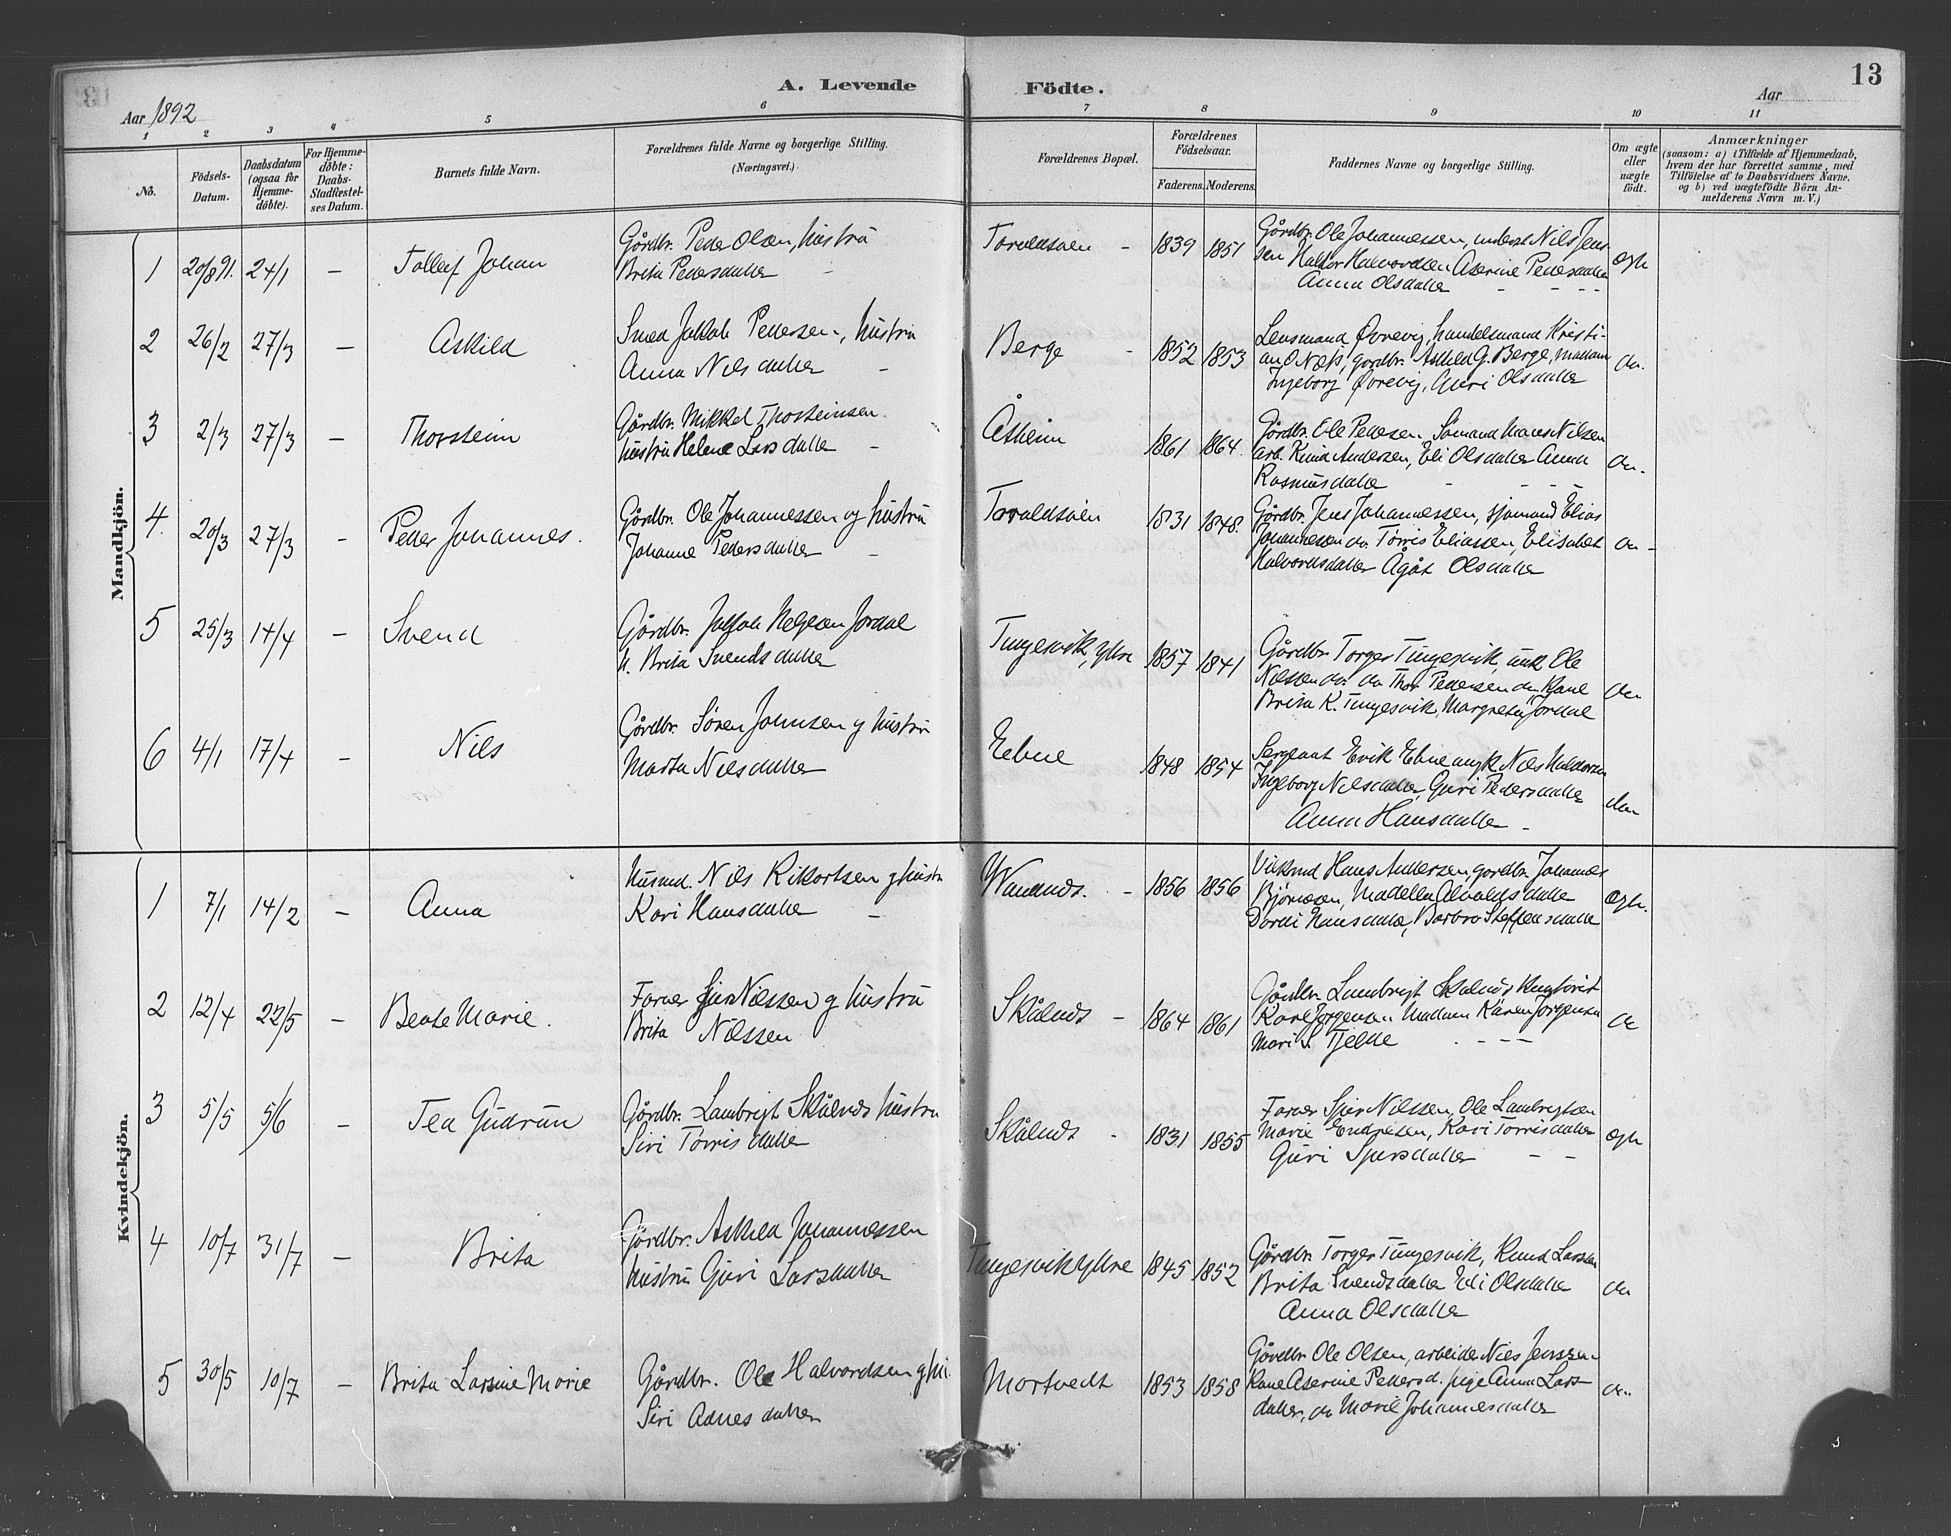 A. Levende Födte. 13
Aar 1892 Aar
1 2 3 4 5 6 7 8 9 10 11
No.
Födsels-Datum.
Daabsdatum (ogsaa for Hjemme-döbte).
For Hjemme-döbte: Daabs-Stadfestel-ses Datum.
Barnets fulde Navn.
Forældrenes fulde Navne og borgerlige Stilling. (Næringsvei.)
Forældrenes Bopæl.
Forældrenes Födselsaar.
Faderens. Moderens.
Faddernes Navne og borgerlige Stilling.
Om ægte eller uægte födt.
Anmærkninger
(saasom: a) i Tilfælde af Hjemmedaab,
hvem der har forrettet samme, med
Tilföielse af to Daabsvidners Navne,
og b) ved uægtefödte Börn An-
melderens Navn m. V.)
Mandkjön.
1 20/8 91. 24/1 – Tollef Johan
Gårdbr. Peder Olsen, hustru
Brita Pedersdatter
1839 1851
Gårdbr. Ole Johannessen, Nils Jens-
sen Halvordsen Aserine Pedersdatter
Anna Olsdatter
2 26/2 27/3 – Askild
Smed Jakob Pedersen, hustru
Anna Nilsdatter
Berge 1852 1853
Lensmand Øvrevig, handelsmand Kristi-
an O. Næss, gårdbr. Askild G. Berge, madam
Ingeborg Øvrevig, Guri Olsdatter
do.
3 2/3 27/3 – Thorstein
Gårdbr. Mikkel Thorsteinsen
hustru Helene Larsdatter
Åsheim 1861 1864.
Gårdbr. Ole Pedersen, Sømand Mons Nilsen
arb. Knud Andersen, Eli Olsdatter Anna
Rasmusdatter
do.
4. 20/3 27/3 – Peder Johannes.
Gårdbr. Ole Johannessen og hustru
Johanne Pedersdatter
1831 1848.
Gårdbr. Jens Johannessen, sjømand Elias
Johannessen do. Tørris Eliassen, Elisabet
Halvordsdatter Ågåt Olsdatter
do –
5 25/3 14/4 – Svend
Gårdbr. Jakob Helgesen Jordal
h. Brita Svendsdatter
Tungesvik, ytre 1857 1841
Gårdbr. Torger Tungesvik, Ole
Nilssen do. do Thor Pedersen do Kone
Brita K. Tungesvik, Margreta Jordal
do
6 4/1 17/4 – Nils
Gårdbr. Søren Johnsen og hustru
Marta Nilsdatter
Eebne 1848 1854
Sergeant Erik Ebne Nils Haldorsen
Ingeborg Nilsdatter, Guri Pedersdatter
Anna Hansdatter
do
Kvindekjön.
1 7/1 14/2 – Anna
Husmd. Nils Rikortsen og hustru
Kari Hansdatter
1856 1856
Hans Andersen, gårdbr. Johannes
Bjørnesen,
Dordi Hansdatter, Barbro Steffensdatter
Ægte.
2 12/4 22/5 – Beate Marie.
Farver Sjur Nilssen og hustru
Brita Nilssen
Skålnds 1864 1861
Gårdbr. Lambrigt Skålnds
Karl Jørgensen Madam Karen Jørgensen
Mari S. Tjelde
do
3 5/5 5/6 – Tea Gudrun
Gårdbr. Lambrigt Skålnds hustru
Siri Tørrisdatter
Skålnds 1831 1855
Farver Sjur Nilssen, Ole Lambrigtsen
Marie Endresen, Kari Tørrisdatter
Guri Sjursdatter
4 10/7 31/7 – Brita
Gårdbr. Askild Johannessen
hustru Guri Larsdatter
Tungesvik ytre 1845 1852
Gårdbr. Torger Tungesvik, Knud Larssen
Brita Svendsdatter Eli Olsdatter
Anna Olsdatter
do
5 30/5 10/7 – Brita Larsine Marie
Gårdbr. Ole Halvordsen og hu.
Siri Adnesdatter
Mortvedt 1853 1858
Gårdbr. Ole Olsen, arbeider Nils Jenssen
Kone Aserine Pedersd. pige Anna Lars-
datter, do Marie Johannesdatter
do.